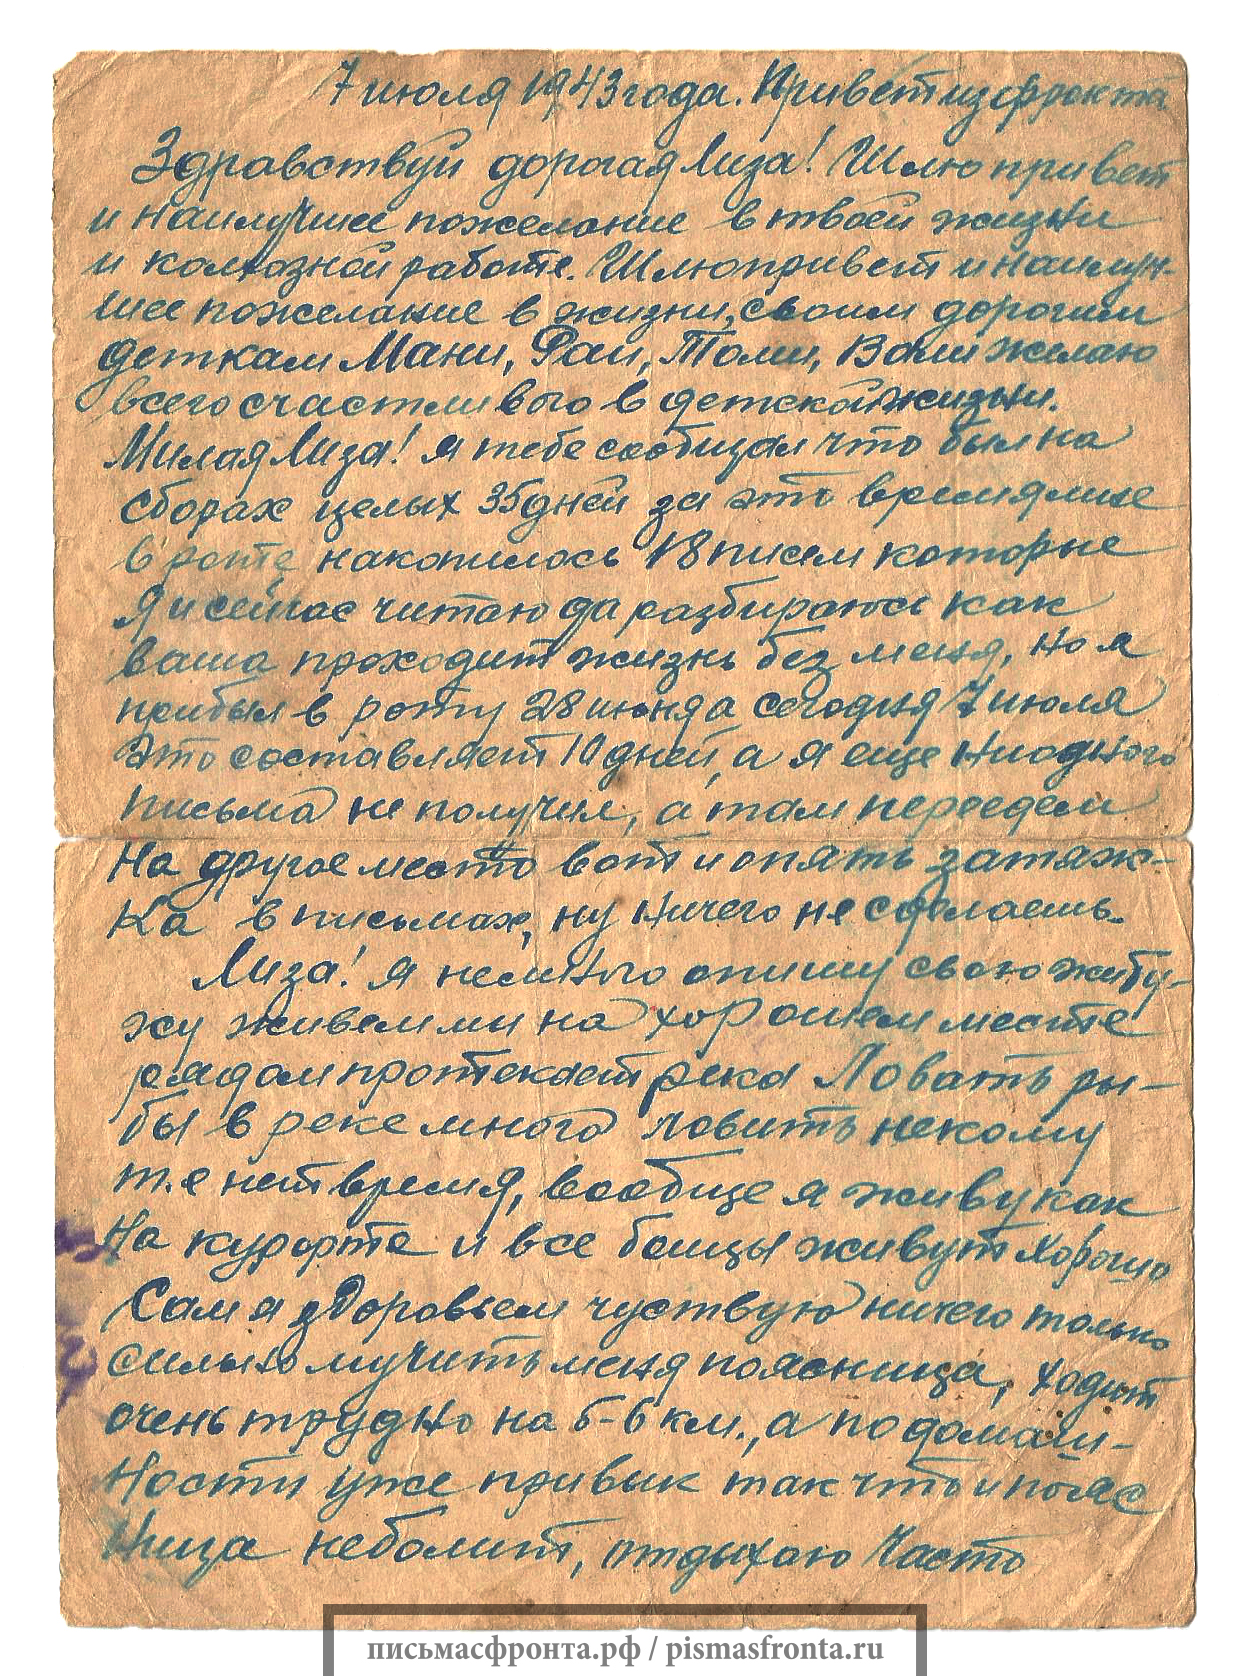 7 июля 1943 года. Привет из фронта
Здравствуй дорогая Лиза! Шлю привет
и наилучшее пожелание в твоей жизни
и колхозной работе. Шлю привет и наилуч-
шее пожелание в жизни, своим дорогим
деткам Мани, Раи, Томи, Вами желаю
всего счастливого в детской жизни.
Милая Лиза! Я тебе сообщал что был на
сборах целых 35 дней за это время мне
в роте накопилось 18 писем которые
я и сейчас читаю да разбираюсь как
ваша проходит жизнь без меня, но я
прибыл в роту 28 июня а сегодня 7 июля
это составляет 10 дней, а я еще ниодного
письма не получил, а там переедем
на другое место вот и опять затяж-
ка в письмах, ну ничего не сделаешь.
Лиза! Я немного опишу свою живу-
ху живем мы на хорошем месте
рядом протекает река Ловать ры-
бы в реке много ловить некому
т.е нет время, вообще я живу как
на курорте и все бойцы живут хорошо
Сам я здоровьем чуствую ничего только
сильно мучить меня поясница, ходит
очень трудно на 5-6 км., а по домаш-
ности уже привык так что и пояс
ница неболит, отдыхаю часто
письмасфронта.рф / pismasfronta.ru